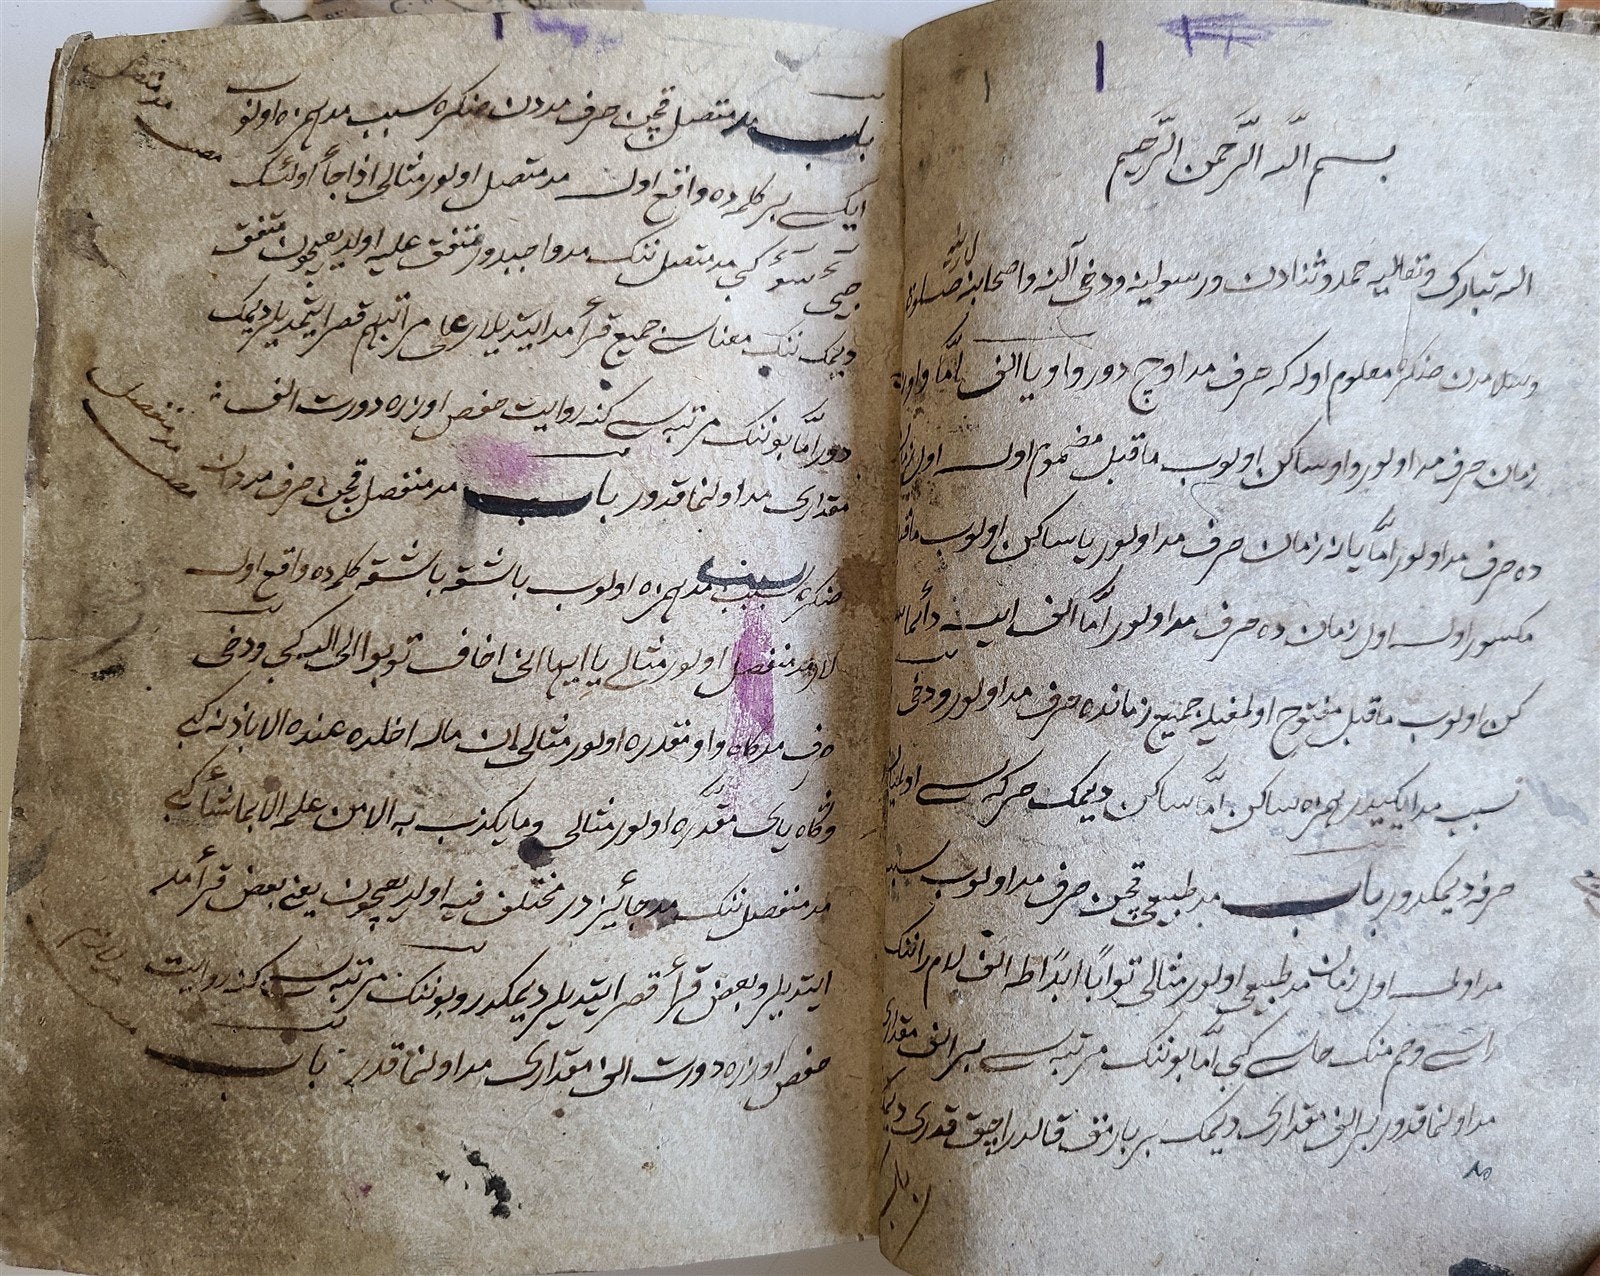 بسم الله الرحمن الرحيم
الله تبارك وتعاليه حمد وثنادن ورسولينه ودخى آلنه واصحابنه صلوة
صكره معلوم اوله كه حرف مد اوچ دور واو يا الف امّا واو نه
زمان حرف مد اولور واو ساكن اولوب ماقبل مضموم اولسه اول زمان
ده حرف مد اولور امّا يا نه زمان حرف مد اولور يا ساكن اولوب ماقبل
مكسور اولسه اول زمان ده حرف مد اولور امّا الف ايسه دائما
كن اولوب ماقبل مفتوح اولمغيله جميع زمانده حرف مد اولور ودخى
سبب مد ايكيدر بر همزه ساكن امّا ساكن ديمك حركه سى
حرفه ديمكدور باب مد طبيعى قچن حرف مد اولوب سبب
مد اولمسه اول زمان مد طبيعى اولور مثالى توابا ابدا طه الف لام را ننك
راسى وحم ننك حاسى كبى امّا بوننك مرتبه سى بر الف مقدارى
مد اولنماقدور بر الف مقدارى ديمك بر بارمق قالدراجق قدرى
باب مد متصل قچن حرف مددن صكره سبب مد همزه اولوب
ايكسى بر كلمه ده واقع اولسه مد متصل اولور مثالى اذا جأ اولئك
جئ سوء كبى مد متصل ننك مدواجبدور متفق عليه اولديغيچون متفق
ديمك ننك معناسى جميع قرأ مد ايتديلار على مراتبهم قصر ايتمديلر ديمك
دور امّا بوننك مرتبه سى كنه روايت حفص اوزره دورت الف
مقدارى مد اولنماقدور باب مد منفصل قچن حرف مددن
صكره سبب مد همزه اولوب باشقه باشقه كلمه ده واقع اولسه
مد منفصل اولور مثالى يا ايها انى اخاف توبوا الى الله كبى ودخى
حرف مد كاه واو مقدره اولور مثالى ان ماله اخلده عنده الا باذنه كبى
وكاه ياى مقدره اولور مثالى وما يكذب به الا من علمه الا بماشأ كبى
مد منفصل ننك مد جائيزدر مختلف فيه اولديغيچون يعنى بعض قرأ مد
ايتديلر وبعض قرأ قصر ايتديلر ديمكدر وبوننك مرتبه سى كنه روايت
حفص اوزره دورت الف مقدارى مد اولنماقدر باب
مد متصل
مد منفصل
مد لازم